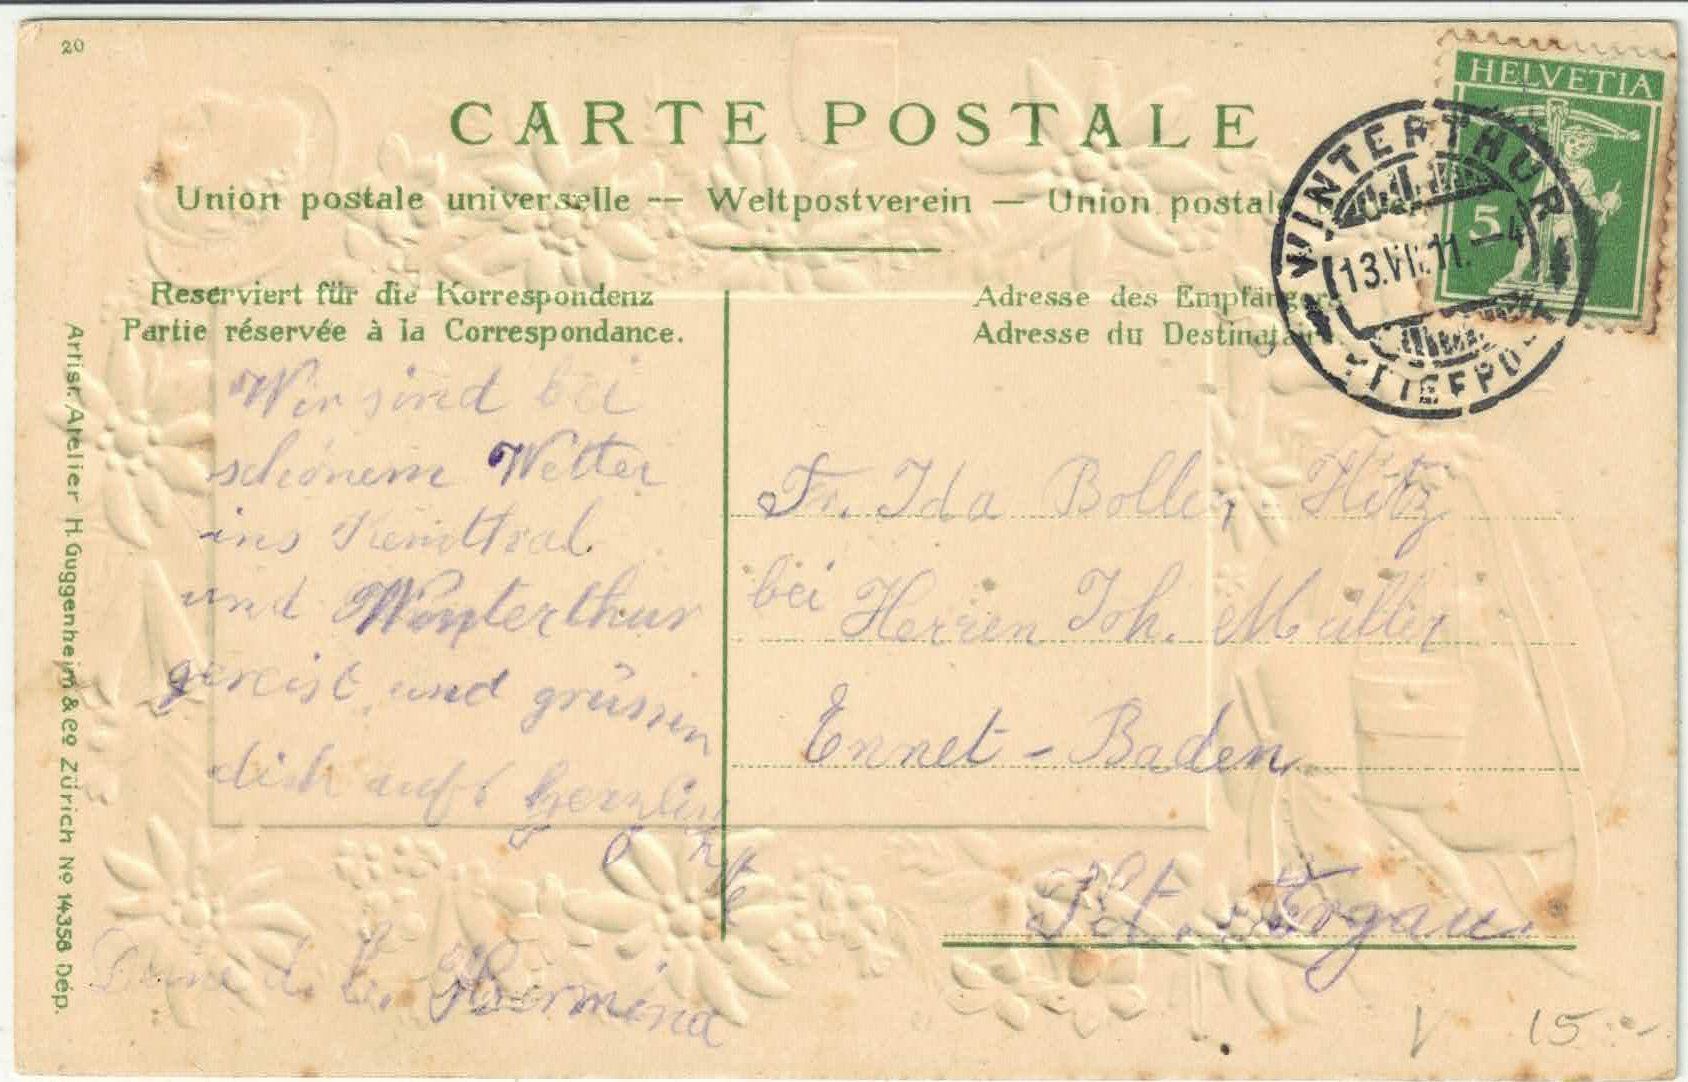 20
CARTE POSTALE
Union postale universelle -- Weltpostverein — Union postale
HELVETIA
5
WINTERTHUR
13.VII.11.–4
BRIEFPOST
Reserviert für die Korrespondenz
Partie réservée à la Correspondance.
Adresse des Empfängers.
Adresse du Destinataire.
Wir sind bei
schönem Wetter
ins
und Winterthur
gereist und grüssen
dich aufs herzlichste
Deine d. C. Hermina
Fr. Ida Boller-Hotz
bei Herren Joh. Müller
Ennet-Baden
Kt. Ergau.
Artist. Atelier H. Guggenheim & Co Zürich No 14356 Dép.
V 15.-